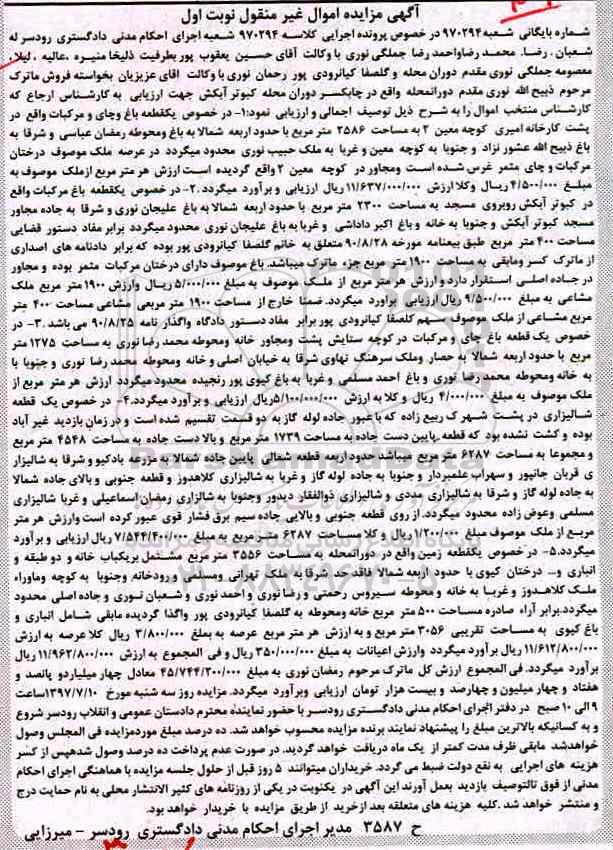 آگهی مزایده اموال غیر منقول نوبت اول
شماره بایگانی شعبه ۹۷۰۲۹۴ در خصوص پرونده اجرایی کلاسه ۹۷۰۲۹۴ شعبه اجرای احکام مدنی دادگستری رودسر له
شعبان ، رضا، محمد رضا واحمد رضا جملگی نوری با وکالت آقای حسین یعقوب پور بطرفیت ذلیخا منیره ، عالیه ، لیلا
معصومه جملگی نوری مقدم دوران محله و گلصفا کیانرودی پور رحمان نوری با وکالت اقای عزیزیان بخواسته فروش ماترک
مرحوم ذبیح الله نوری مقدم دورانمحله واقع در چابکسر دوران محله کبوتر آبکش جهت ارزیابی به کارشناس ارجاع که
کارشناس منتخب اموال را به شرح ذیل توصیف اجمالی و ارزیابی نمود:۱- در خصوص یکقطعه باغ وچای و مرکبات واقع در
پشت کارخانه امیری کوچه معین ۲ به مساحت ۲۵۸۶ متر مربع با حدود اربعه شمالا به باغ ومحوطه رمضان عباسی و شرقا به
باغ ذبیح الله عشور نژاد و جنوبا به کوچه معین و غربا به ملک حبیب نوری محدود میگردد در عرصه ملک موصوف درختان
مرکبات و چای مثمر غرس شده است ومجاور در کوچه معین ۲ واقع گردیده است ارزش هر متر مربع از ملک موصوف به
مبلغ ۴/۵۰۰/۰۰۰ ریال وکلا ارزش ۱۱/۶۳۷/۰۰۰/۰۰۰ ریال ارزیابی و برآورد میگردد .۲- در خصوص یکقطعه باغ مرکبات واقع
در کبوتر آبکش روبروی مسجد به مساحت ۲۳۰۰ متر مربع با حدود اربعه شمالا به باغ علیجان نوری و شرقا به جاده مجاور
مسجد کبوتر آبکش و جنوبا به خانه و باغ اکبر داداشی و غربا به باغ علیجان نوری محدود میگردد برابر مفاد دستور قضایی
مساحت ۴۰۰ متر مربع طبق بیعنامه مورخه ۹۰/۸/۲۸ متعلق به خانم گلصفا کیانرودی پور بوده که برابر دادنامه های اصداری
از ماترک کسر ومابقی به مساحت ۱۹۰۰ متر مربع جزء ماترک میباشد. باغ موصوف دارای درختان مرکبات مثمر بوده و مجاور
در جاده اصلی استقرار دارد و ارزش هر متر مربع از ملک موصوف به مبلغ ۵/۰۰۰/۰۰۰ ریال وارزش ۱۹۰۰ متر مربع ملک
مشاعی به مبلغ ۹/۵۰۰/۰۰۰ ریال ارزیابی برآورد میگردد. ضمنا خارج از مساحت ۱۹۰۰ متر مربعی مشاعی مساحت ۴۰۰ متر
مربع مشاعی از ملک موصوف سهم گلصفا کیانرودی پور برابر مفاد دستور دادگاه واگذار نامه ۹۰/۸/۲۵ می باشد .۳- در
خصوص یک قطعه باغ چای و مرکبات در کوچه ستایش پشت ومجاور خانه ومحوطه محمد رضا نوری به مساحت ۱۲۷۵ متر
مربع با حدود اربعه شمالا به حصار وملک سرهنگ تهاوی شرقا به خیابان اصلی و خانه ومحوطه محمد رضا نوری و جنوبا با
به خانه ومحوطه محمد رضا نوری و باغ احمد مسلمی و غربا به باغ کیوی پور رنجیده محدود میگردد ارزش هر متر مربع از
ملک موصوف به مبلغ ۴/۰۰۰/۰۰۰ ریال و کلا به ارزش ۵/۱۰۰/۰۰۰/۰۰۰ ریال ارزیابی و برآورد میگردد.۴- در خصوص یک قطعه
شالیزاری در پشت شهرک ربیع زاده که با عبور جاده لوله گاز به دو قسمت تقسیم شده است و در زمان بازدید غیر آباد
بوده و کشت نشده بود که قطعه پایین دست جاده به مساحت ۱۷۳۹ متر مربع و بالا دست جاده به مساحت ۴۵۴۸ متر مربع
و مجموعا به مساحت ۶۲۸۷ متر مربع میباشد حدود اربعه قطعه شمالی پایین جاده شمالا به مزرعه بادکیو و شرقا به شالیزار
ی قربان جانپور و سهراب علمبردار و جنوبا به جاده لوله گاز و غربا به شالیزاری کلاهدوز و قطعه جنوبی و بالای جاده شمالا
به جاده لوله گاز و شرقا به شالیزاری مددی و شالیزاری ذوالفقار دیدور وجنوبا به شالزاری رمضان اسماعیلی و غربا شالیزاری
مسلمی وعوض زاده محدود میگردد. از روی قطعه جنوبی و بالایی جاده سیم برق فشار قوی عبور کرده است وارزش هر متر
مربع از ملک موصوف مبلغ ۱/۲۰۰/۰۰۰ ریال و کلا مساحت ۶۲۸۷ متر مربع به مبلغ ۷/۵۴۴/۴۰۰/۰۰۰ ریال ارزیابی و برآورد
میگردد.۵- در خصوص یکقطعه زمین واقع در دورانمحله به مساحت ۳۵۵۶ متر مربع مشتمل بریکباب خانه و دو طبقه و
انباری و... درختان کیوی با حدود اربعه شمالا فاقد حد شرقا به ملک تهرانی ومسلمی و رودخانه وجنوبا به کوچه وماوراء
ملک کلاهدوز و غربا به خانه و محوطه سیروس رحمتی و رضا نوری و احمد نوری و شعبان نوری و جاده اصلی محدود
میگردد.برابر آراء صادره مساحت ۵۰۰ متر مربع خانه ومحوطه به گلصفا کیانرودی پور واگذا گردیده مابقی شامل انباری و
باغ کیوی به مساحت تقریبی ۳۰۵۶ متر مربع و به ارزش هر متر مربع عرصه به مبلغ ۳/۸۰۰/۰۰۰ ریال کلا عرصه به ارزش
۱۱/۶۱۲/۸۰۰/۰۰۰ ریال برآورد میگردد وارزش اعیانات به مبلغ ۳۵۰/۰۰۰/۰۰۰ ریال و فی المجموع به ارزش ۱۱/۹۶۲/۸۰۰/۰۰۰ ریال
برآورد میگردد. فی المجموع ارزش کل ماترک مرحوم رمضان نوری به مبلغ ۴۵/۷۴۴/۲۰۰/۰۰۰ معادل چهار میلیاردو پانصد و
هفتاد و چهار میلیون و چهارصد و بیست هزار تومان ارزیابی وبرآورد میگردد. مزایده روز سه شنبه مورخ ۱۳۹۷/۷/۱۰ساعت
۹ الی ۱۰ صبح در دفتر اجرای احکام مدنی دادگستری رودسر با حضور نماینده محترم دادستان عمومی و انقلاب رودسر شروع
و به کسانیکه بالاترین مبلغ را پیشنهاد نمایند برنده مزایده محسوب خواهد شد. ده درصد مبلغ موردمزایده فی المجلس وصول
خواهدشد مابقی ظرف مدت کمتر از یک ماه دریافت خواهد گردید. در صورت عدم پرداخت ده درصد وصول شدهپس از کسر
هزینه های اجرایی به نفع دولت ضبط می گردد. خریداران میتوانند ۵ روز قبل از حلول جلسه مزایده با هماهنگی اجرای احکام
مدنی از فوق ثالتوصیف بازدید بعمل آورند این آگهی در یکنوبت در یکی از روزنامه های کثیر الانتشار محلی به نام حمایت درج
و منتشر خواهد شد .کلیه هزینه های متعلقه بعد ازخرید از طریق مزایده با خریدار خواهد بود.
ح ۳۵۸۷ مدیر اجرای احکام مدنی دادگستری رودسر - میرزایی